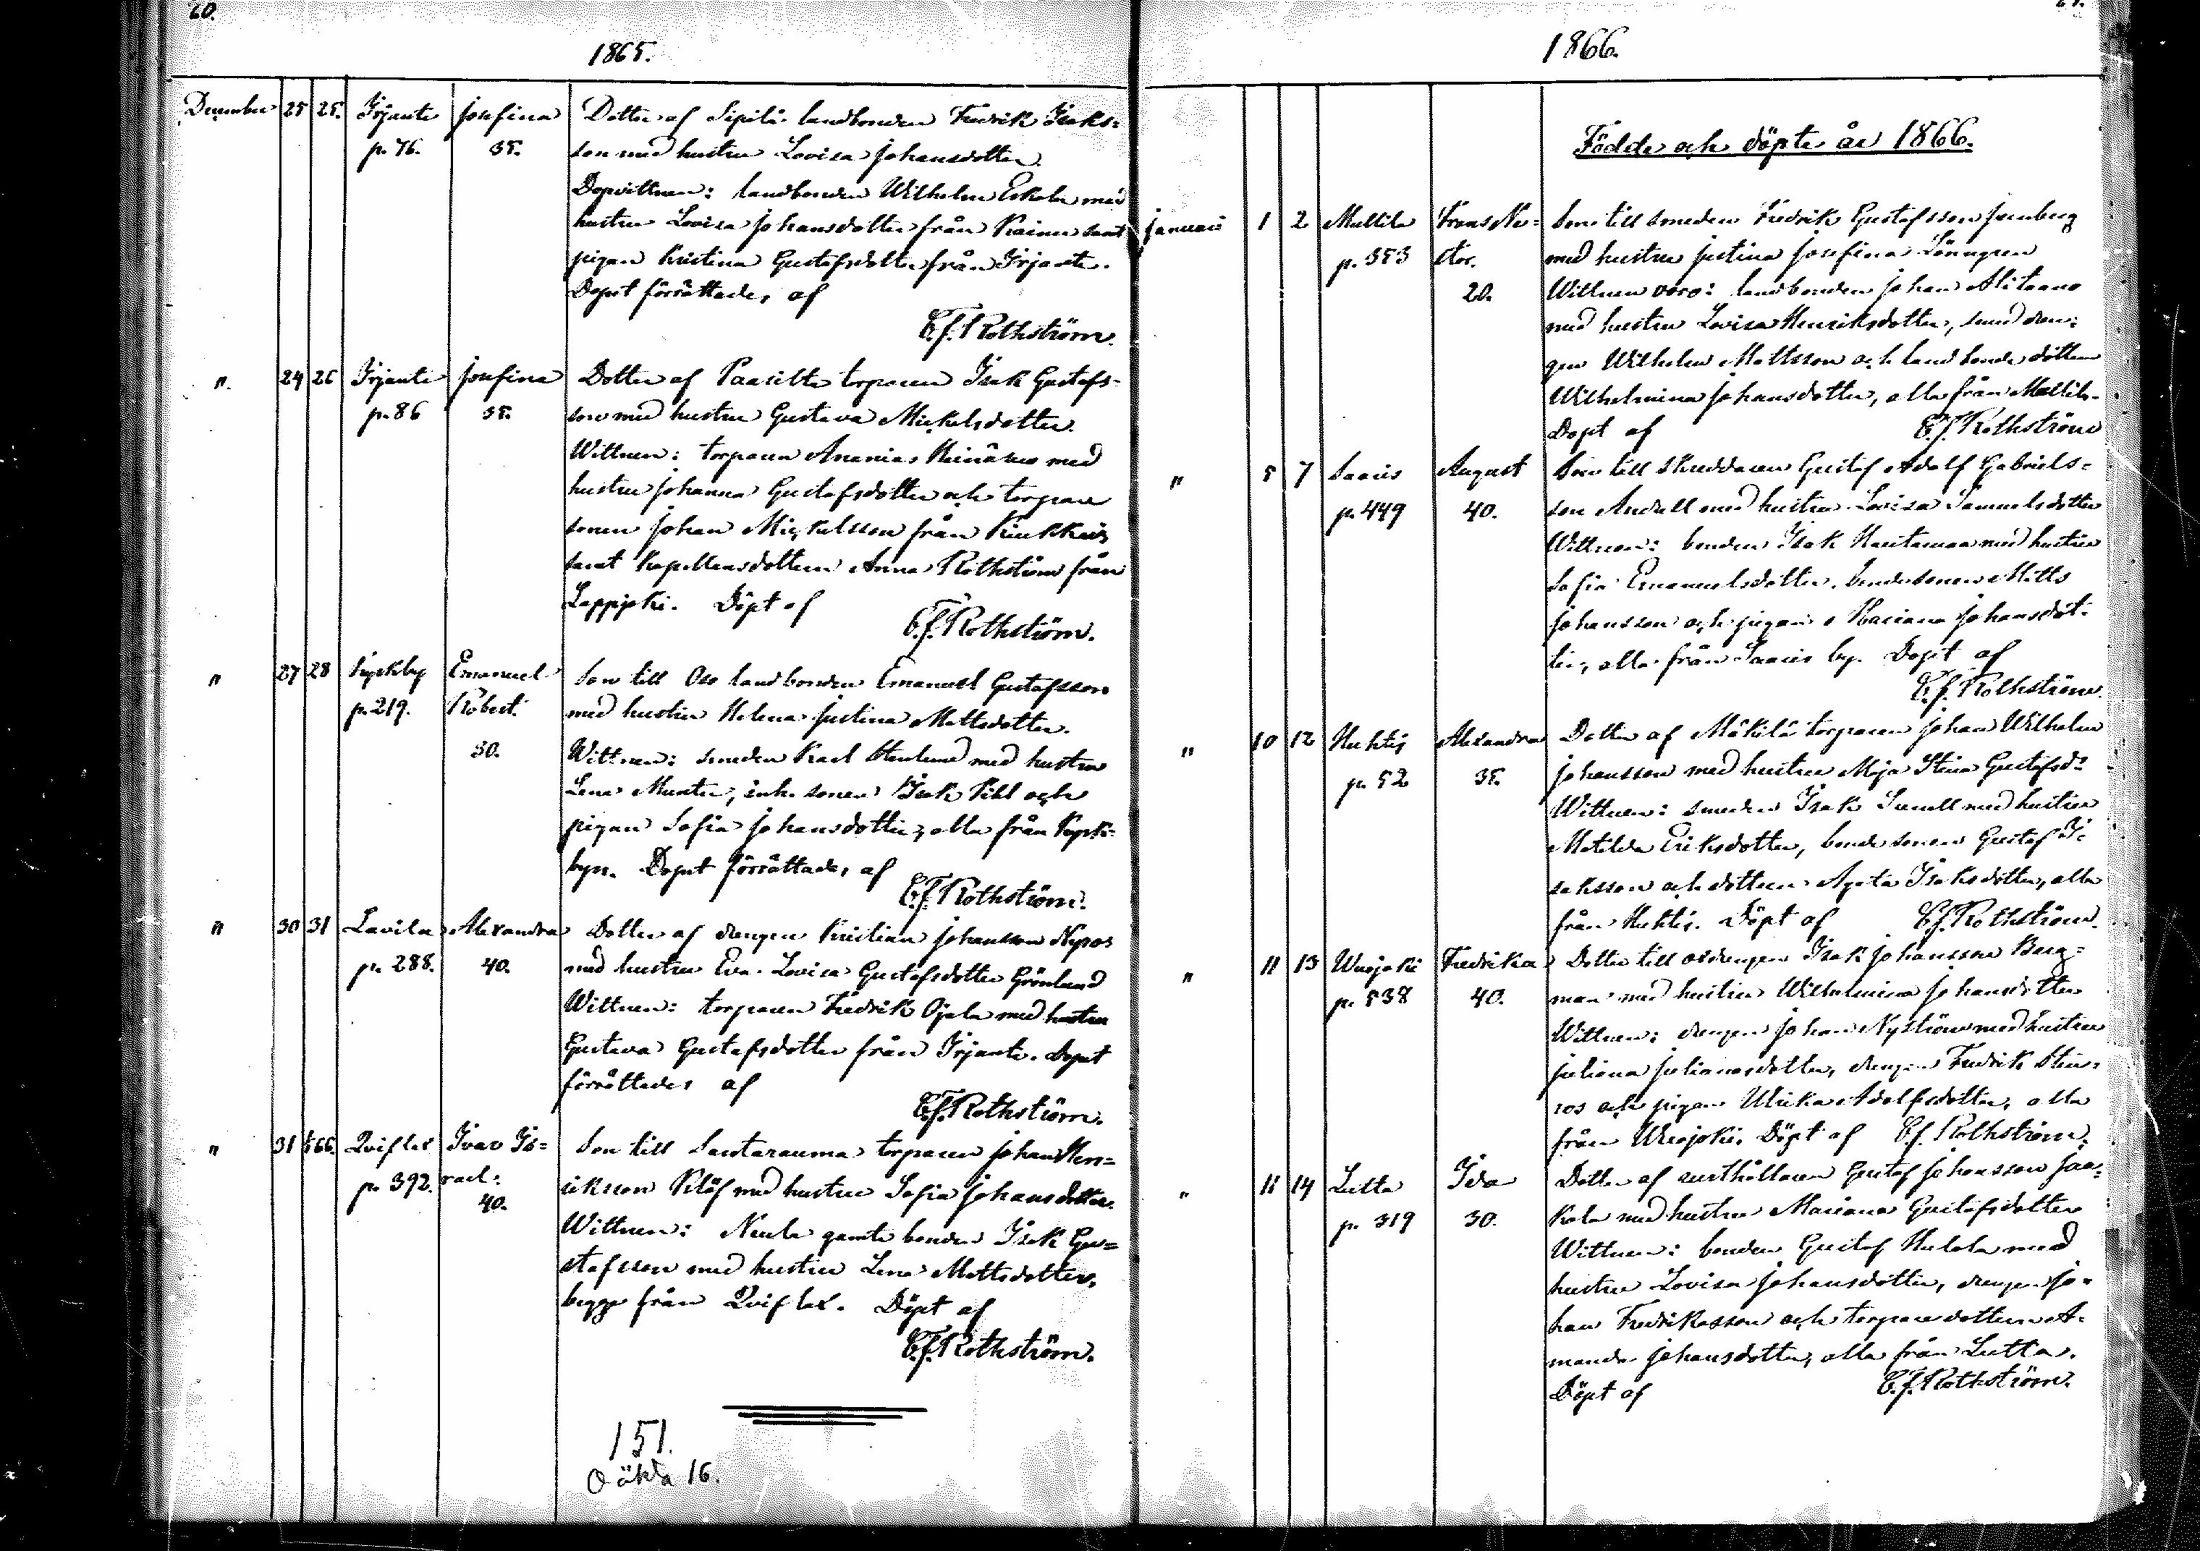 60.
1865.
December 25 25. Irjante Josefina Dotter af Sipilä landbonden Fredrik Isaks=
p. 76. 35. son med hustru Lovisa Johansdotter.
Dopvittnen: landbonden Wilhelm Eskola med
hustru Lovisa Johansdotter från Kainu samt
pigan Kristina Gustafsdotter från Irjante.
Dopet förrättades af
C.f. Rothström.
". 24 26 Irjante Josefina Dotter af Paasilta torparen Isak Gustafs-
p. 86 35. son med hustru Gustava Mickelsdotter.
Wittnen: torparen Ananias Heinänen med
hustru Johanna Gustafsdotter och torpare
sonen Johan Mickelsson från
samt kapellansdottern Anna Rothström från
Lappijoki. Döpt af
C.f. Rothström.
" 27 28 Kyrkby Emanuel Son till Oso landbonden Emanuel Gustafsson
p. 219. Robert. med hustru Helena Justina Mattsdotter.
30. Wittnen: smeden Karl Stenlund med hustru
Lena Munter, inh. sonen Isak Kihl och
pigan Sofia Johansdotter, alla från Kyrko=
byn. Dopet förrättades af
C.f. Rothström.
" 30 31 Lavila Alexandra Dotter af drengen Kristian Johansson Nyroos
p. 288. 40. med hustru Eva Lovisa Gustafsdotter Grönlund
Wittnen: torparen Fredrik Ojala med hustru
Gustava Gustafsdotter från Irjante. Dopet
förrättades af
C.f. Rothström.
" 31 Qviflax Ivar Is= Son till Santarauma torparen Johan Hen=
p. 392. rael. riksson Klöf med hustru Sofia Johansdotter.
40.
Wittnen: gamla bonden Isak Gu=
stafsson med hustru Lena Mattsdotter,
begge från Qviflax. Döpt af
C.f. Rothström.
151.
Oäkta 16.
1866.
Födde och döpte år 1866.
Januari 1 2 Mullila Frans Ne= Son till smeden Fredrik Gustafsson
p. 353 stor. med hustru Justina Josefina Lönngren
20. Wittnen voro: landbonden Johan Alitaano
med hustru Lovisa Henriksdotter, smed dren=
gen Wilhelm Mattsson och landbonde dottern
Wilhelmina Johansdotter, alla från Mullila.
Döpt af C.f. Rothström
" 5 7 Saaris August Son till skreddaren Gustaf Adolf Gabriels=
p. 449 40. son Andell med hustru Lovisa Samuelsdotter
Wittnen: bonden Isak Hautamaa med hustru
Sofia Emanuelsdotter, bondesonen Matts
Johansson och pigan Mariana Johansdot=
ter, alla från Saaris by. Döpt af
C.f. Rothström.
" 10 12 Huhtis Alexandra Dotter af Mäkilä torparen Johan Wilhelm
p. 52 35. Johansson med hustru Maja Stina Gustafsdr
Wittnen: smeden Isak Sunell med hustru
Matilda Eriksdotter, bondesonen Gustaf I=
saksson och dottern Agata Isaksdotter, alla
från Huhtis. Döpt af C.f. Rothström.
" 11 13 Wuojoki Fredrika Dotter till drengen Isak Johansson Berg=
p. 538 40. man med hustru Wilhelmina Johansdotter
Wittnen: drengen Johan Nyström med hustru
Juliana Julianasdotter, drengen Fredrik Sten=
ros och pigan Ulrika Adolfsdotter, alla
från Wuojoki. Döpt af C.f. Rothström.
" 11 14 Lutta Ida Dotter af rusthållaren Gustaf Johansson Jaa=
p. 319 30. kola med hustru Mariana Gustafsdotter
Wittnen: bonden Gustaf Hulola med
hustru Lovisa Johansdotter, drengen Jo=
han Fredriksson och torparedottern A=
manda Johansdotter, alla från Lutta.
Döpt af C.f. Rothström.